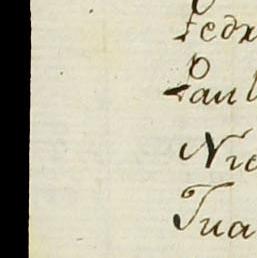 Pedr
Paul
Nic
Jua